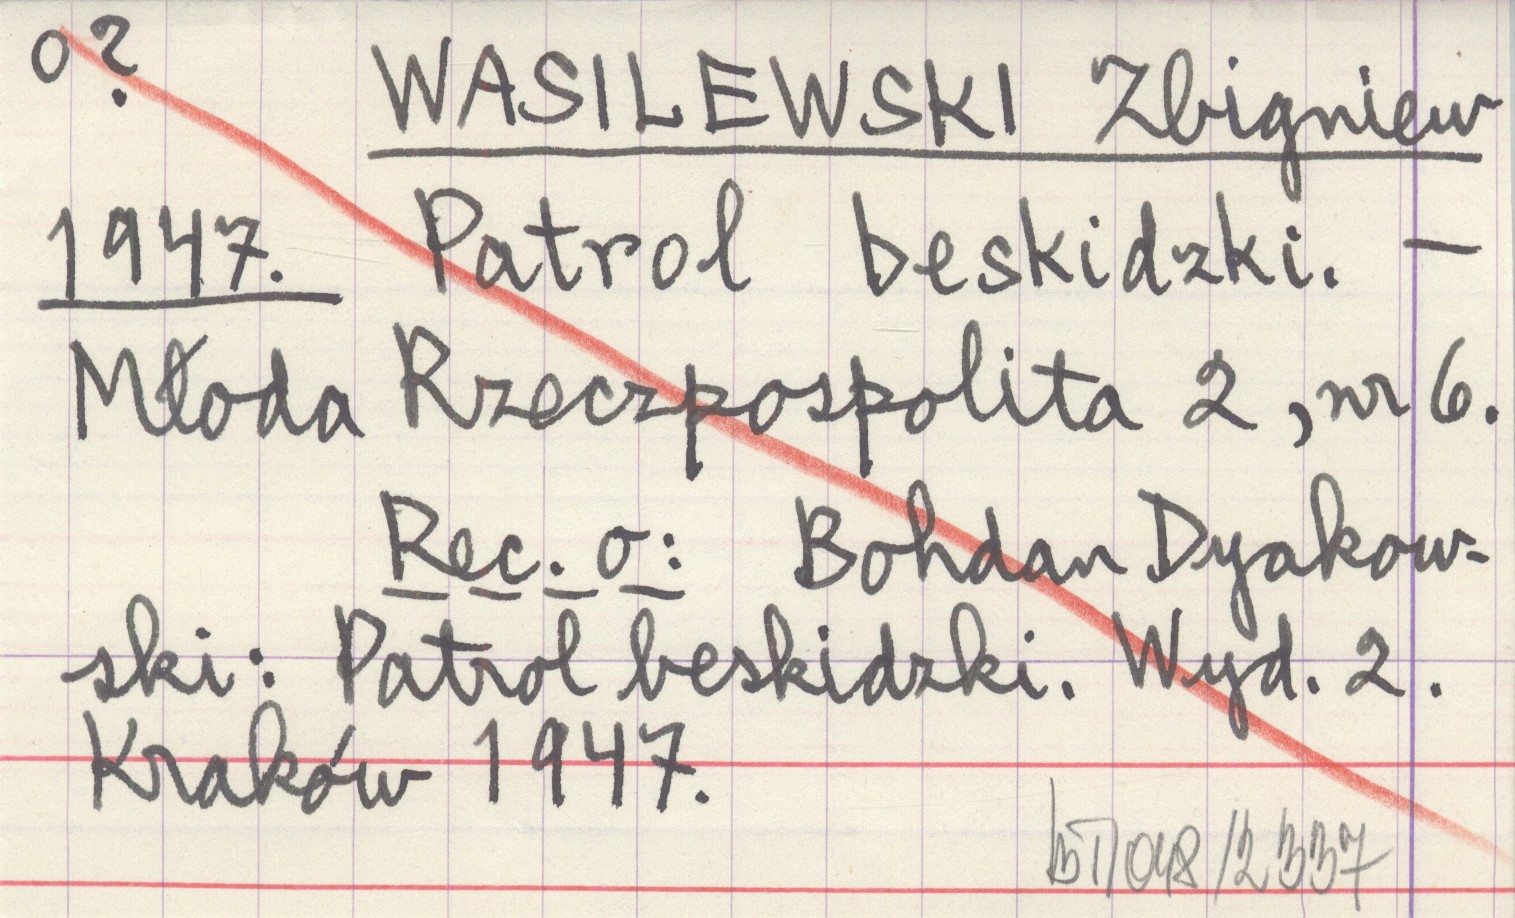 o ?
WASILEWSKI Zbigniew
1947. Patrol beskidzki. –
Młoda Rzeczpospolita 2, nr 6.
Rec. o: Bohdan Dyakow-
ski: Patrol beskidzki. Wyd. 2.
Kraków 1947.
/2337